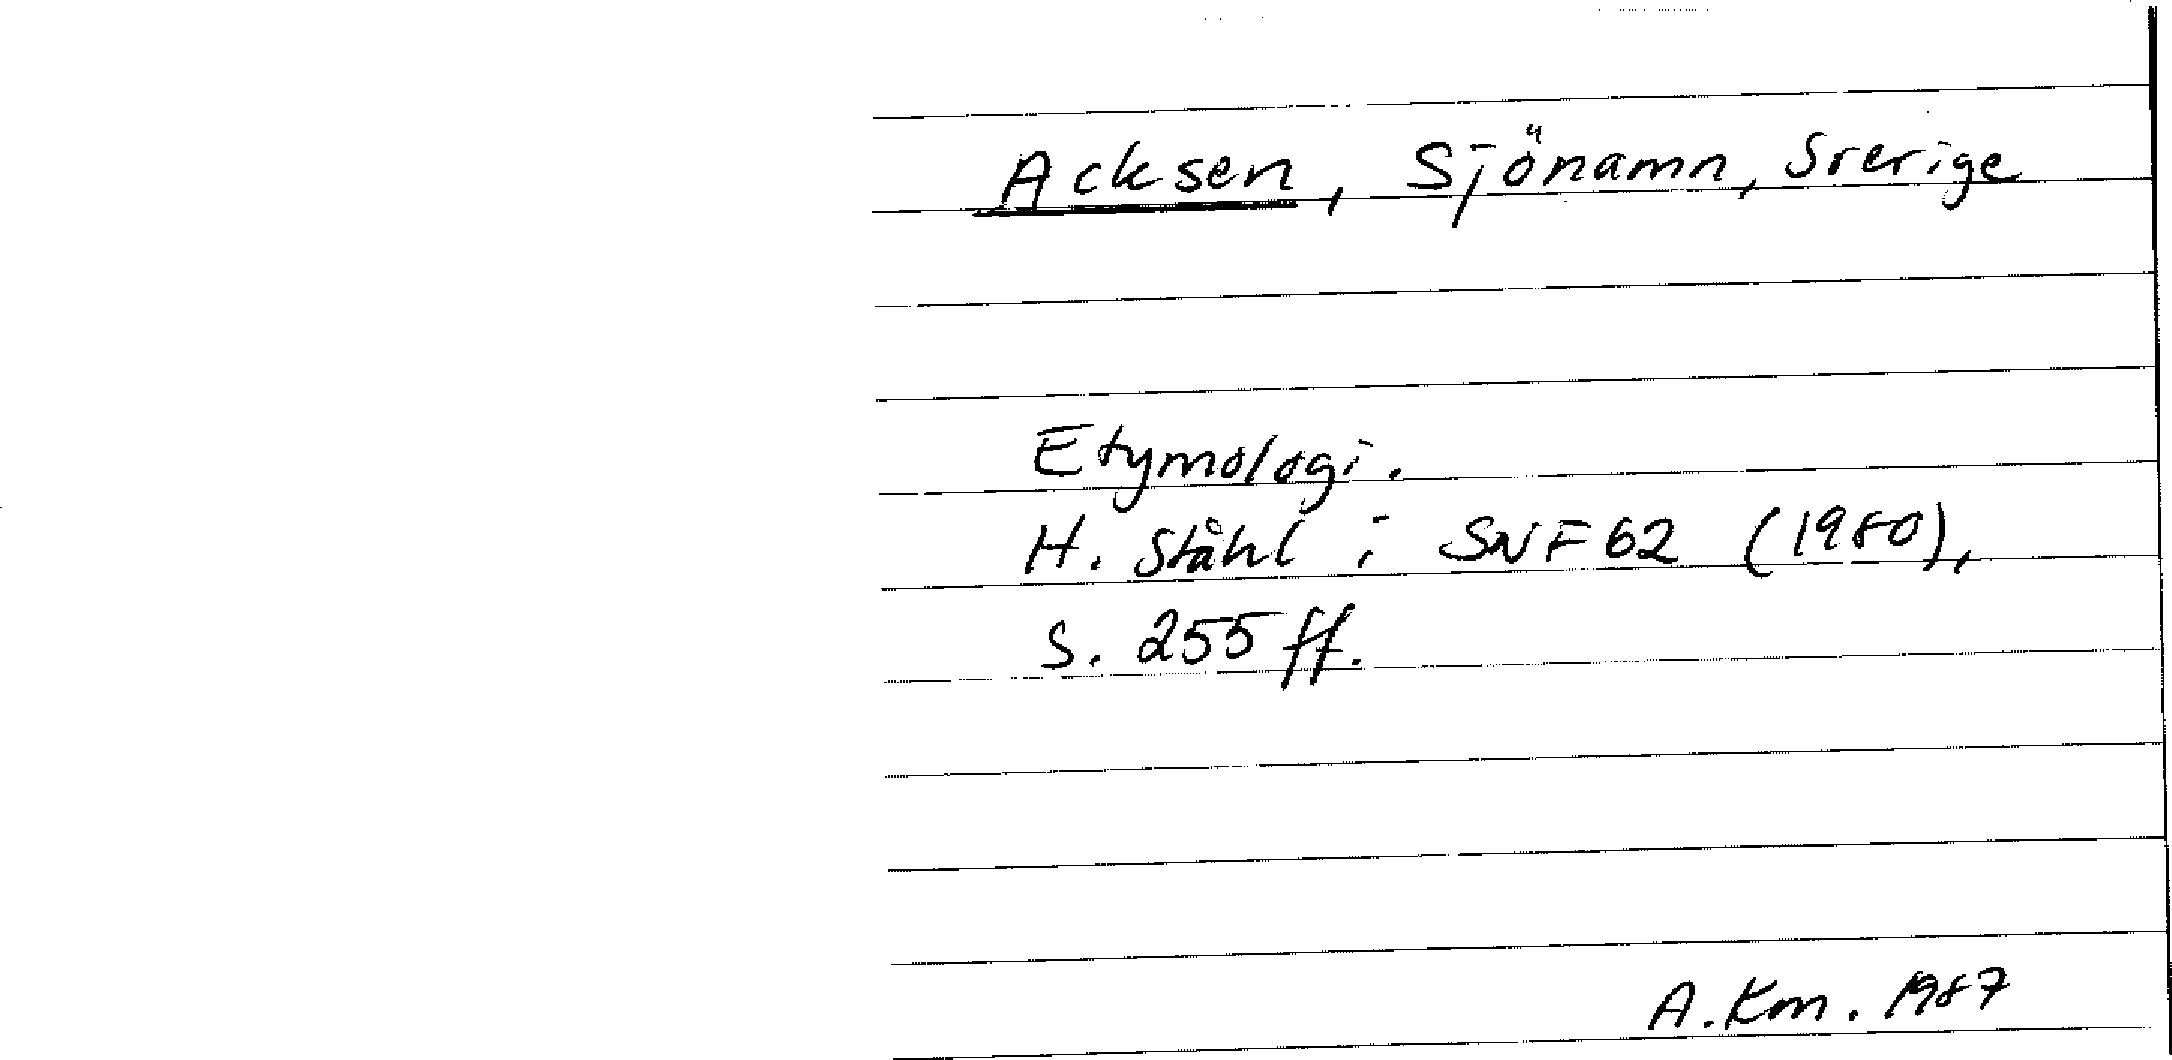 Acksen, Sjönamn, Sverige
Etymologi.
H. Ståhl i SNF 62 (1980),
s. 255 ff.
A. Km. 1987